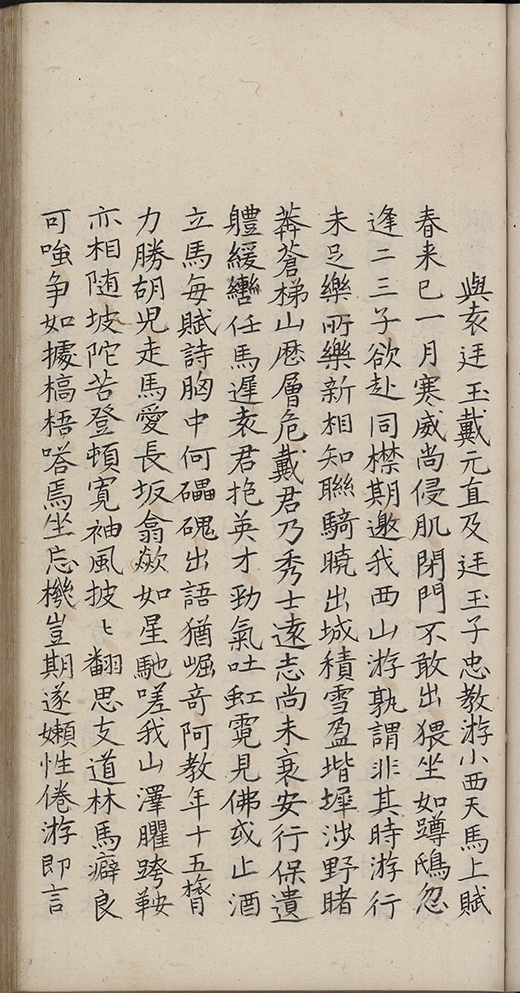 與袁廷玉戴元直及廷玉子忠教游小西天馬上賦
春来已一月寒威尚侵肌閉門不敢出猥坐如蹲鴟忽
逢二三子欲赴同襟期邀我西山游孰謂非其時游行
未足樂所樂新相知聯騎曉出城積雪盈堦墀涉野睹
莽蒼梯山歷層危戴君乃秀士遠志尚未衰安行保遺
軆緩轡任馬遲袁君抱英才勁氣吐虹霓見佛或止酒
立馬每賦詩胸中何礧磈出語猶崛奇阿教年十五膂
力勝胡児走馬愛長坂翕歘如星馳嗟我山澤臞跨鞍
亦相随坡陀苦登頓寛袖風披〻翻思支道林馬癖良
可嗤争如據槁梧嗒焉坐忘機豈期遂嬾性倦游即言